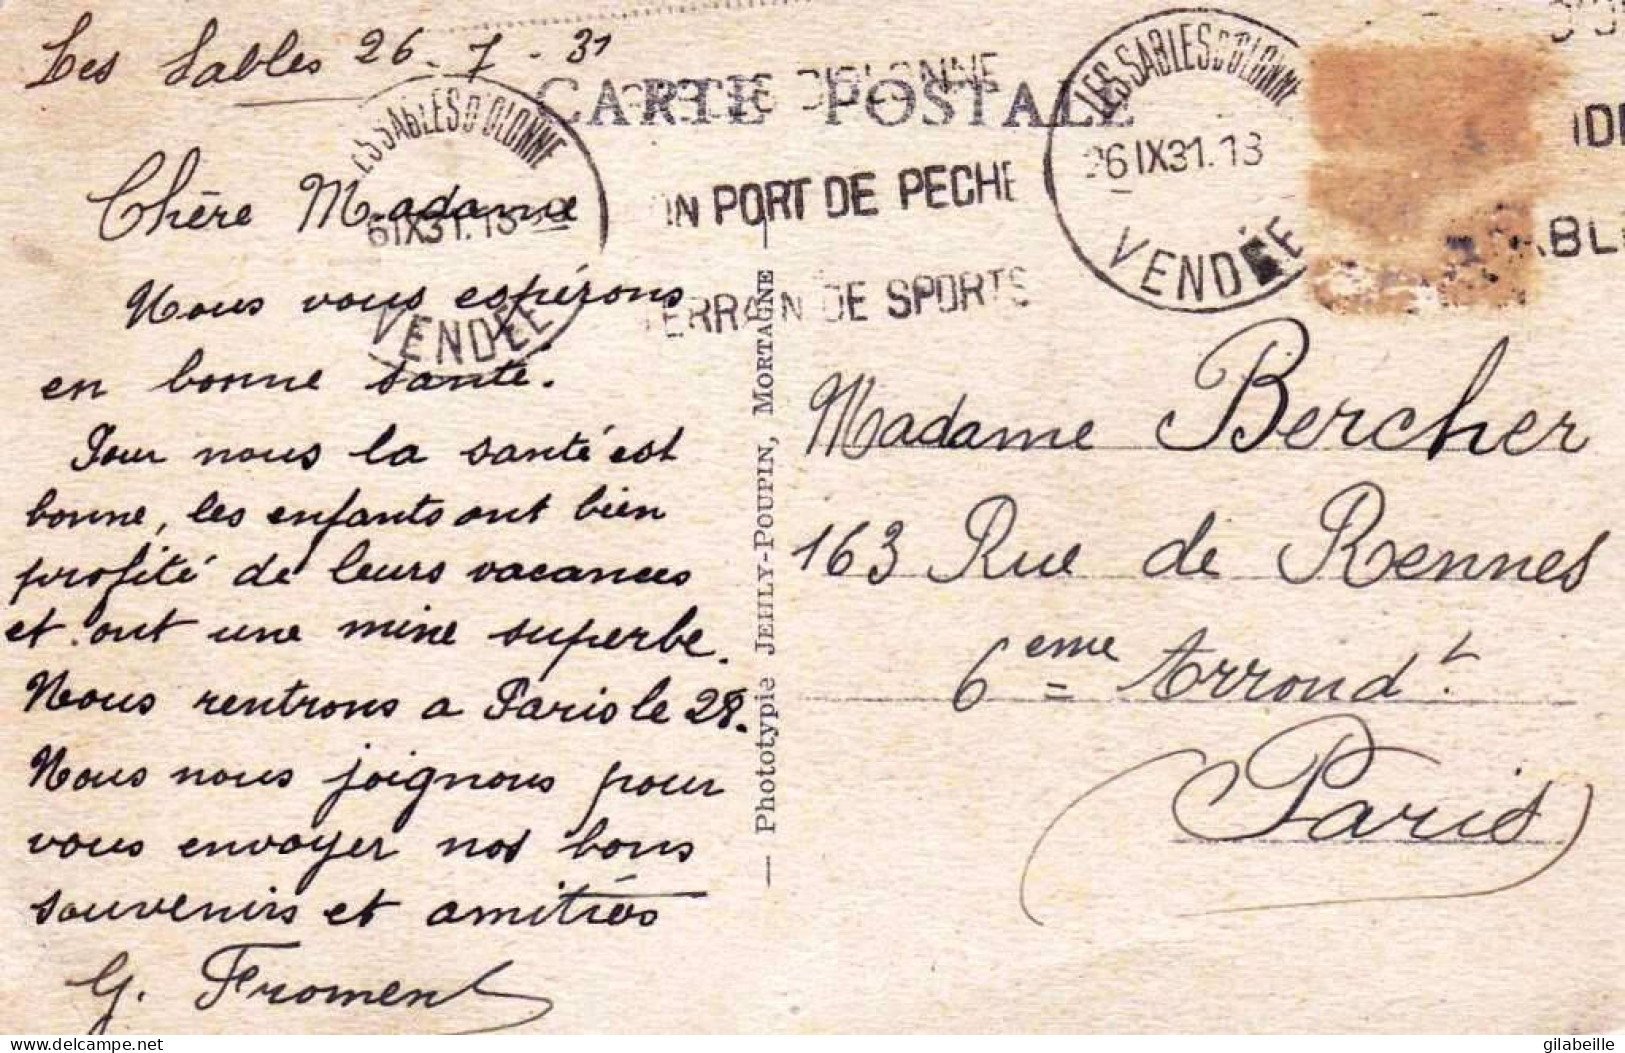 Les Sables 26-7-31
CARTE POSTALE
LES SABLES D'OLONNE
26 IX 31. 13
VENDÉE
PORT DE PECHE
TERRAIN DE SPORTS
LES SABLES D'OLONNE
6 IX 31. 13
VENDÉE
Chère Madame
Nous vous espérons
en bonne santé.
Pour nous la santé est
bonne, les enfants ont bien
profité de leurs vacances
et ont une mine superbe.
Nous rentrons a Paris le 28.
Nous nous joignons pour
vous envoyer nos bons
souvenirs et amitiés
G. Froment
— Phototypie JEHLY-POUPIN, MORTAGNE —
Madame Bercher
163 Rue de Rennes
6eme Arrondt.
Paris
gilabeille